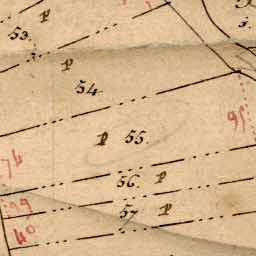 53. P
P
54
P 55.
56. P
57 P
74
99
40
95